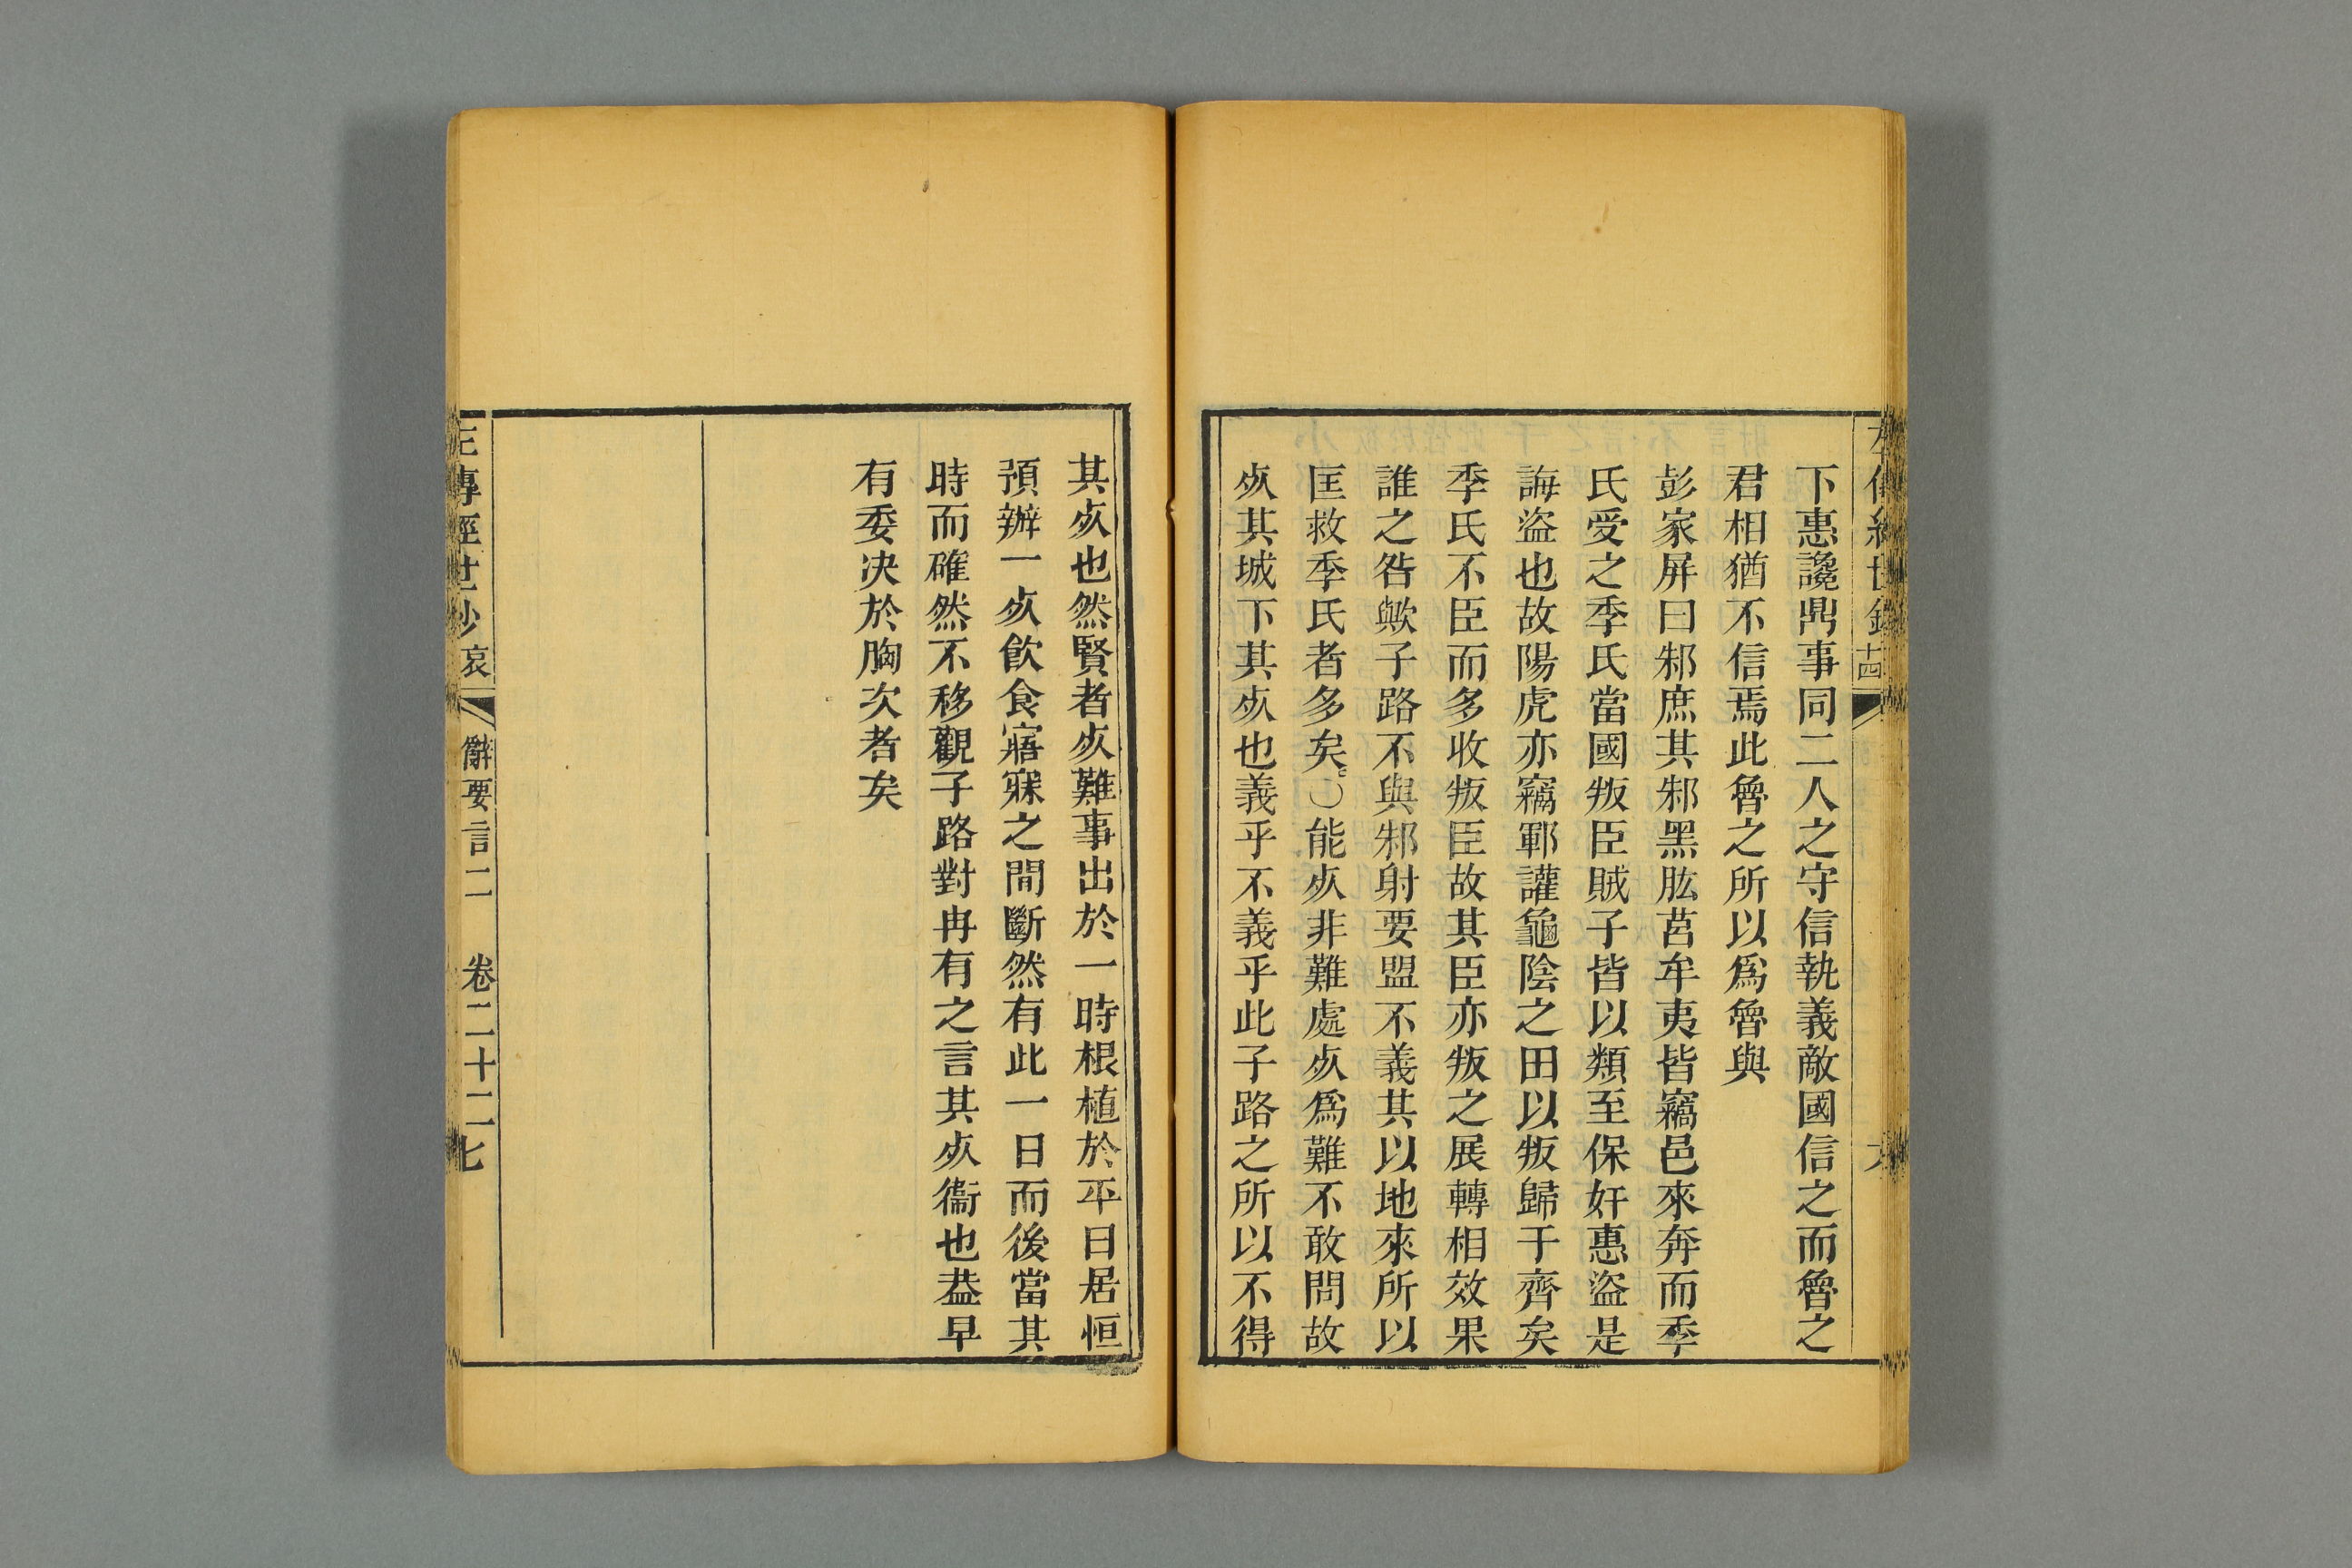 下惠讒鼎事同二人之守信執義敵國信之而魯之
君相猶不信焉此魯之所以爲魯與
彭家屏曰邾庶其邾黑肱莒牟夷皆竊邑來奔而季
氏受之季氏當國叛臣賊子皆以類至保奸惠盜是
誨盜也故陽虎亦竊鄆讙龜陰之田以叛歸于齊矣
季氏不臣而多收叛臣故其臣亦叛之展轉相效果
誰之咎歟子路不與邾射要盟不義其以地來所以
匡救季氏者多矣○能㱙非難處㱙爲難不敢問故
㱙其城下其㱙也義乎不義乎此子路之所以不得
其㱙也然賢者㱙難事出於一時根植於平日居恒
預辦一㱙飲食寤寐之間斷然有此一日而後當其
時而確然不移觀子路對冉有之言其㱙衞也葢早
有委决於胸次者矣
左傳經世鈔 哀 辭要言二 卷二十二 七